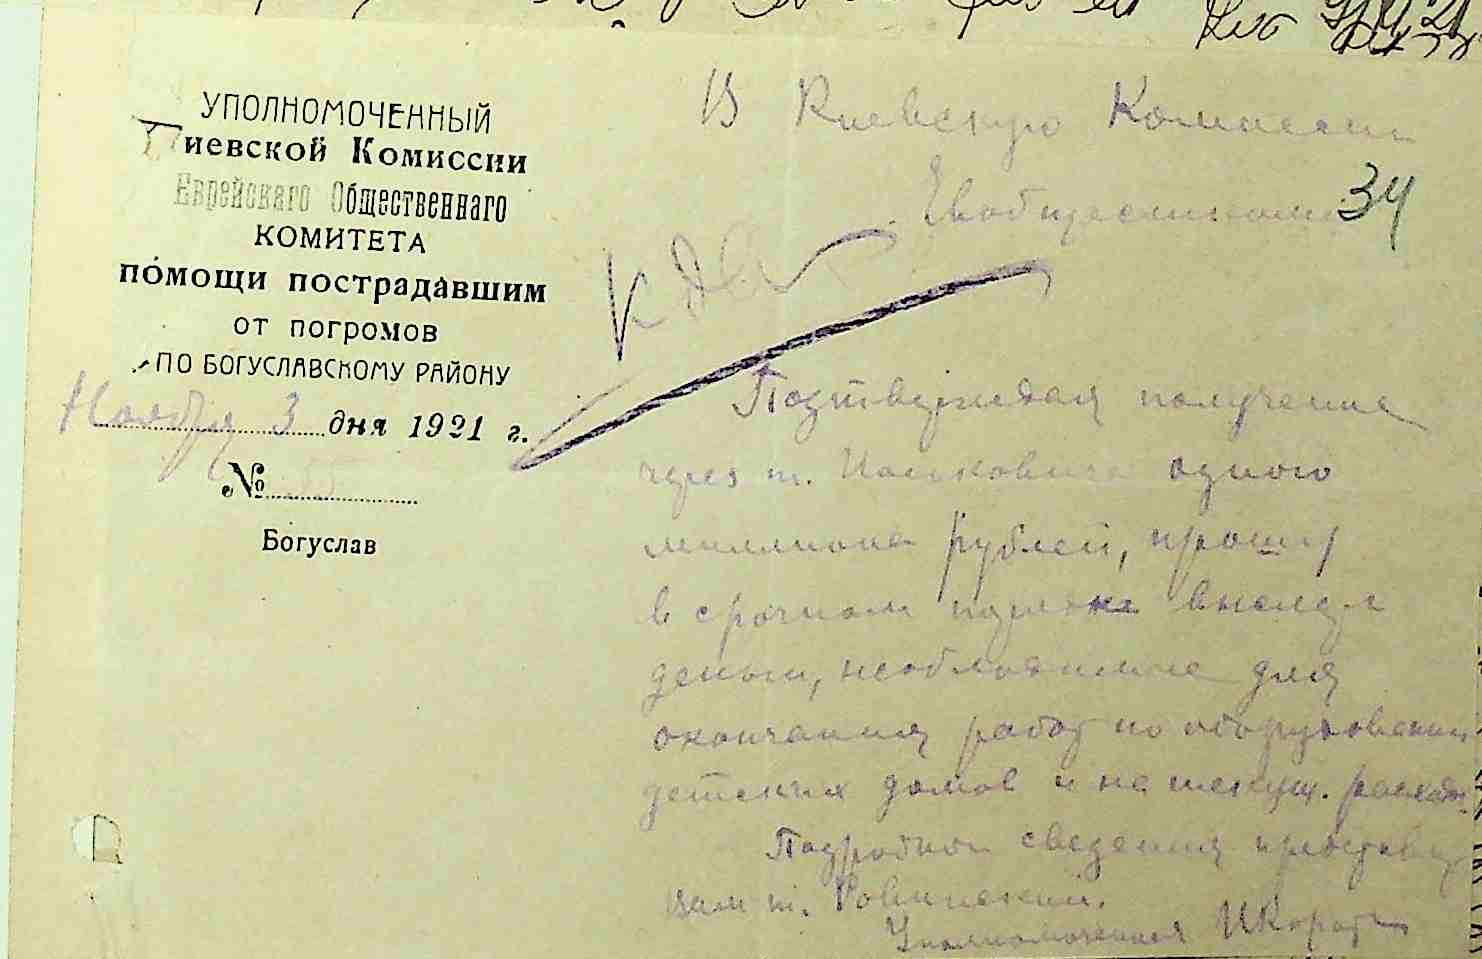 УПОЛНОМОЧЕННЫЙ
Киевской Комиссии
Еврейскаго Общественнаго
КОМИТЕТА
помощи пострадавшим
от погромов
ПО БОГУСЛАВСКОМУ РАЙОНУ
Ноября 3 дня 1921 г.
№
Богуслав
В Киевскую Комиссию
Евобщесткома
34
К делу
Подтверждая получение
через т. одного
миллиона рублей, прошу
в срочном порядке выслать
деньги, необходимые для
окончания работ по оборудованию
детских домов и на текущ. расходы.
Подробные сведения представит
вам т. Ровинский.
Уполномоченный